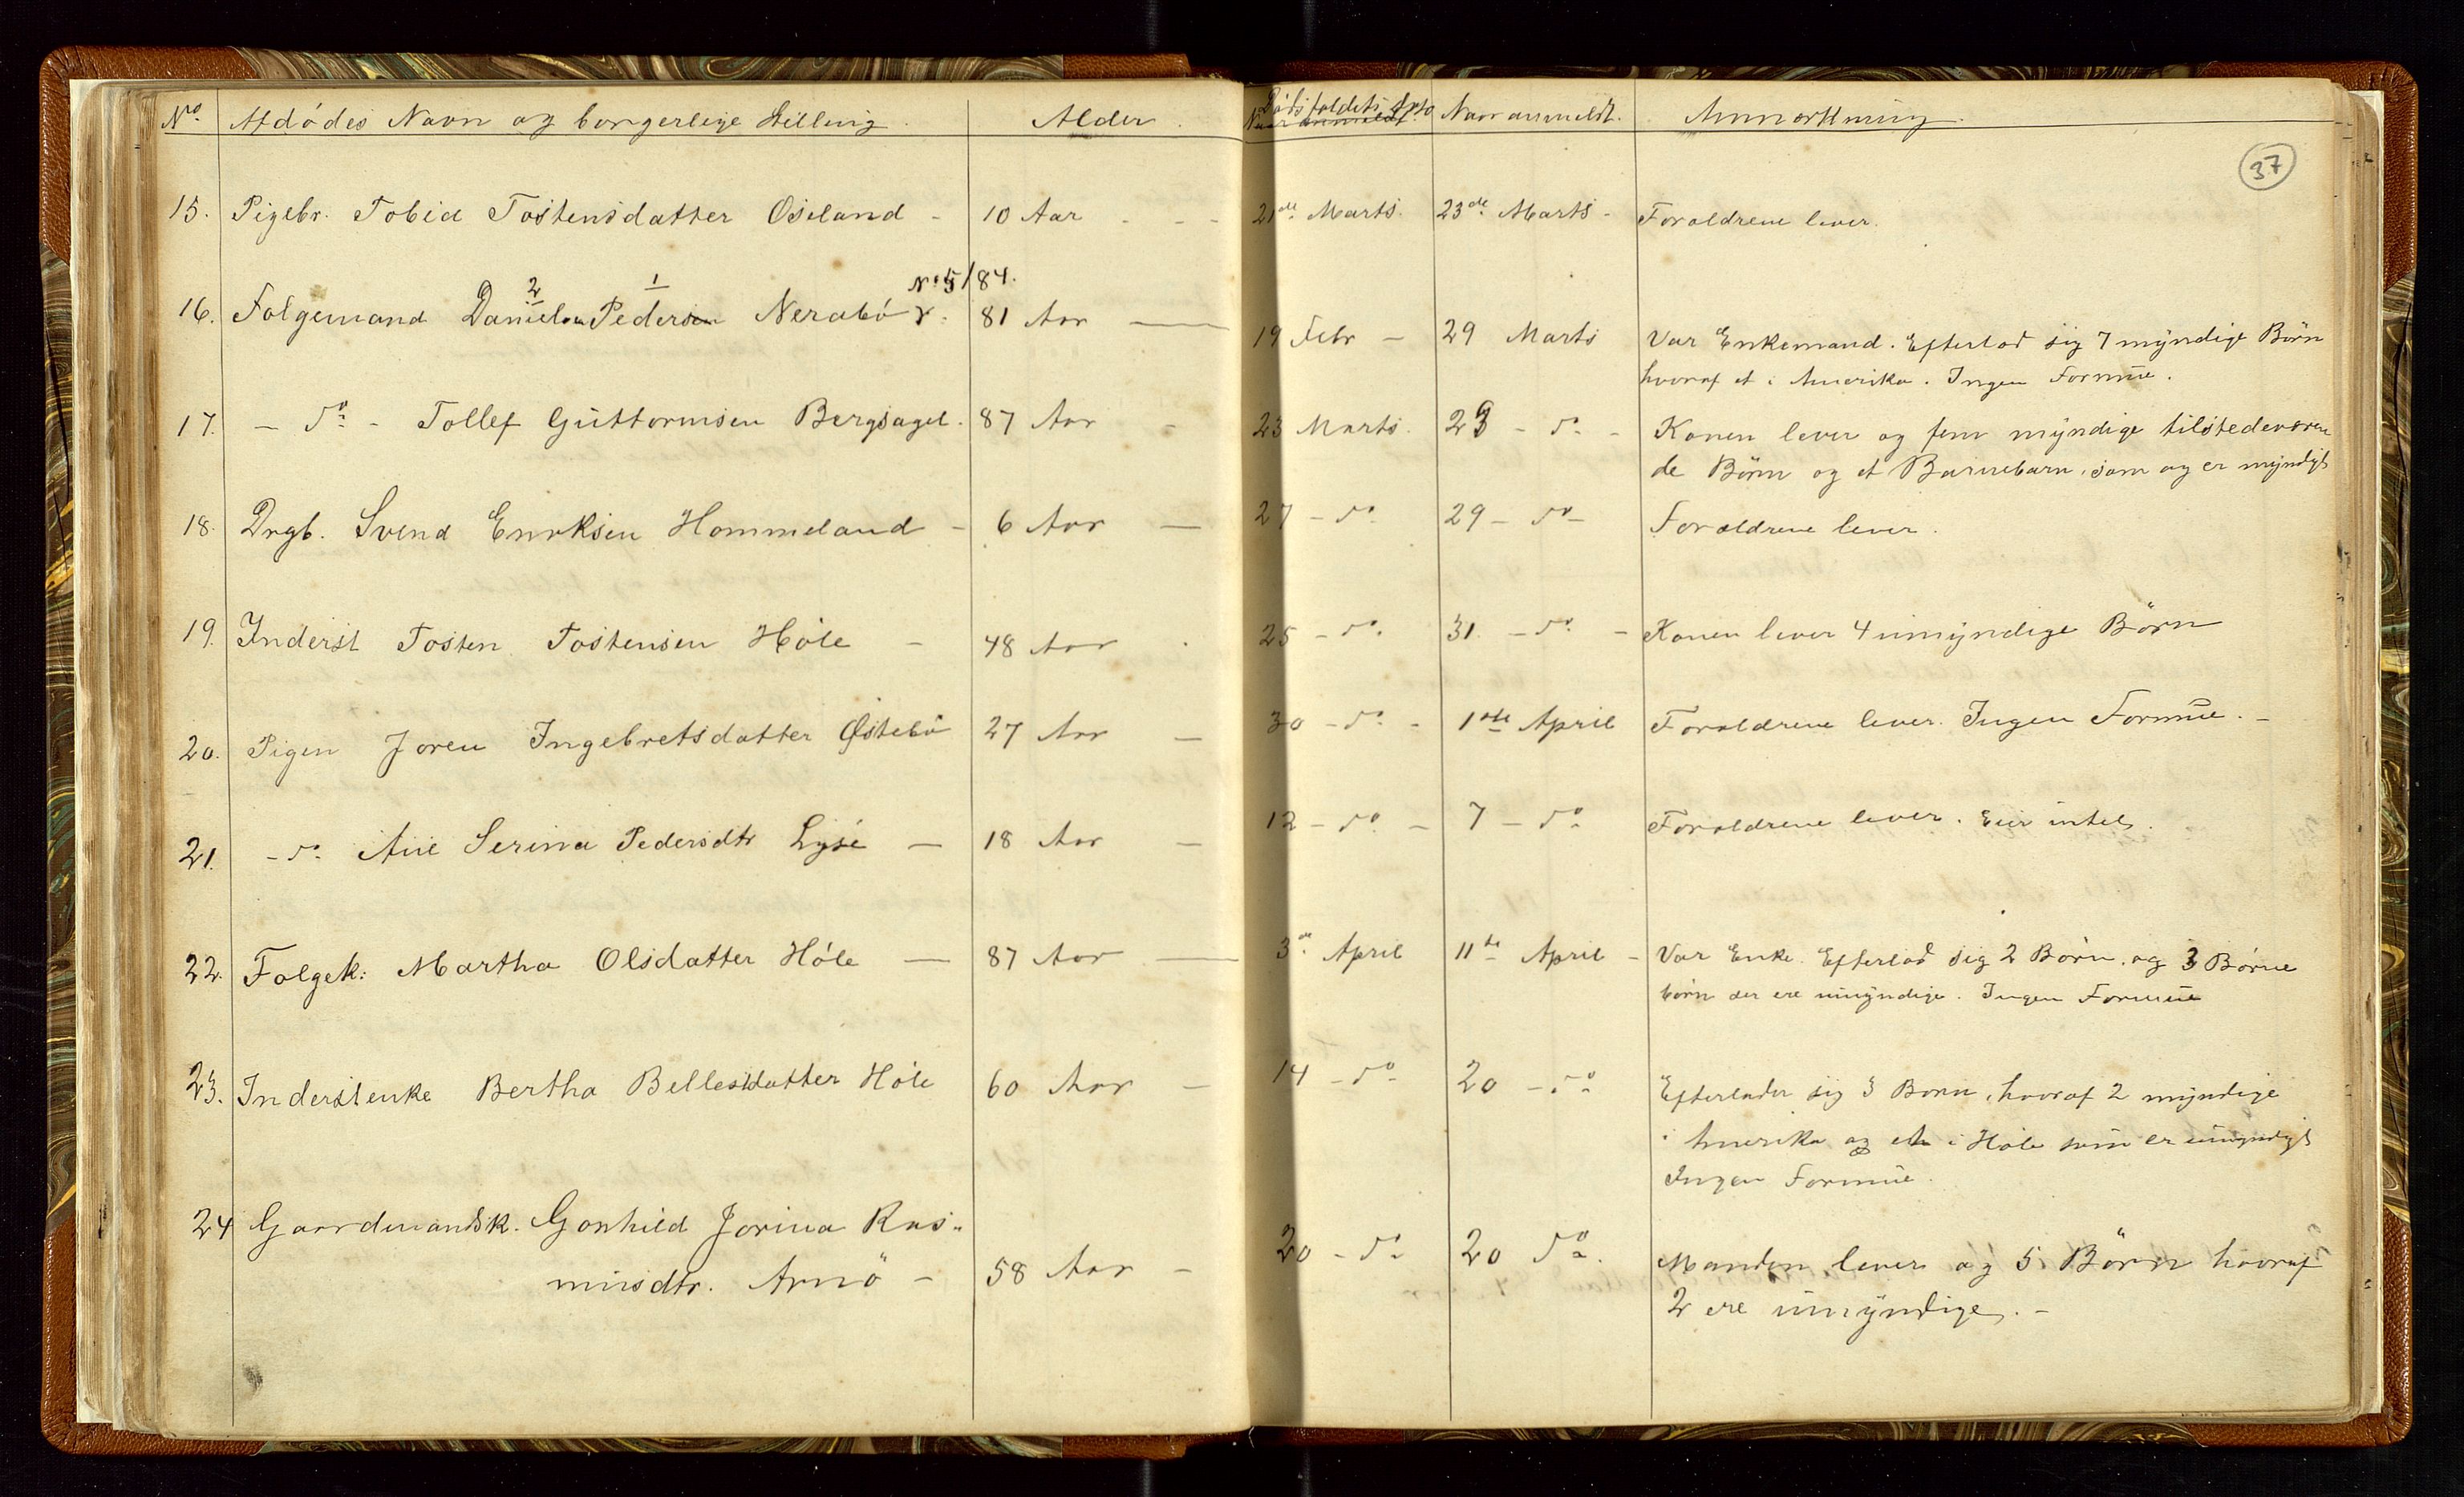 No. Afdödes Navn og borgerlige Stilling. Alder. Dödsfaldets Dato Naar anmeldt Naar anmeldt. Anmærkning.
37
15. Pigebr. Tobia Tostensdatter Oseland - 10 Aar - - - 21de Marts. 23de Marts - Forældrene lever.
No 5/84.
2 1
16. Folgemand Danielsen Pedersen Nerabö 81 Aar — 19 Febr - 29 Marts Var Enkemand. Efterlod sig 7 myndige Börn
hvoraf et i Amerika. Ingen Formue.
17. - do - Tollef Guttormsen Bergsagel. 87 Aar - 23 Marts. 29 - do - Konen lever og fem myndige tilstedeværen
de Börn og et Barnebarn, som og er myndigt
18. Drgb. Svend Eriksen Hommeland - 6 Aar — 27 - do 29 - do - Forældrene lever.
19. Inderst Tosten Tostensen Höle - 48 Aar 25 - do. 31. - do - Konen lever 4 umyndige Börn
20. Pigen Joren Ingebretsdatter Östebö 27 Aar — 30 - do - 1ste April Forældrene lever. Ingen Formue. -
21. - do Ane Serina Pedersdtr Lyse — 18 Aar — 12 - do - 7 - do Forældrene lever. Eier intet.
22. Folgek: Martha Olsdatter Höle — 87 Aar — 3de April 11te April - Var Enke. Efterlod sig 2 Börn. og 3 Börne
börn der ere umyndige. Ingen Formue
23. Inderstenke Bertha Bellesdatter Höle 60 Aar — 14 - do 20 - do Efterlader sig 3 Born, hvoraf 2 myndige
i Amerika og et i Höle som er umyndigt
Ingen Formue.
24 Gaardmandsk. Gonhild Jorina Ras-
musdtr. Arnö - 58 Aar - 20 - do 20 do. Manden lever og 5 Börn hvoraf
2 ere umyndige. -